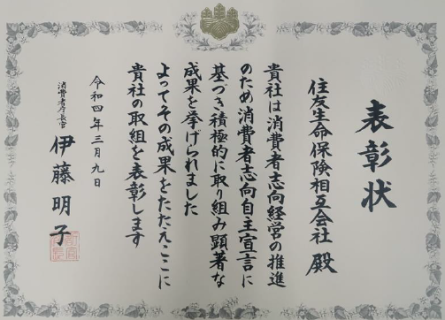 表彰状
住友生命保険相互会社 殿
貴社は消費者志向経営の推進
のため消費者志向自主宣言に
基づき積極的に取り組み顕著な
成果を挙げられました
よってその成果をたたえここに
貴社の取組を表彰します
令和四年三月九日
消費者庁長官 伊藤明子